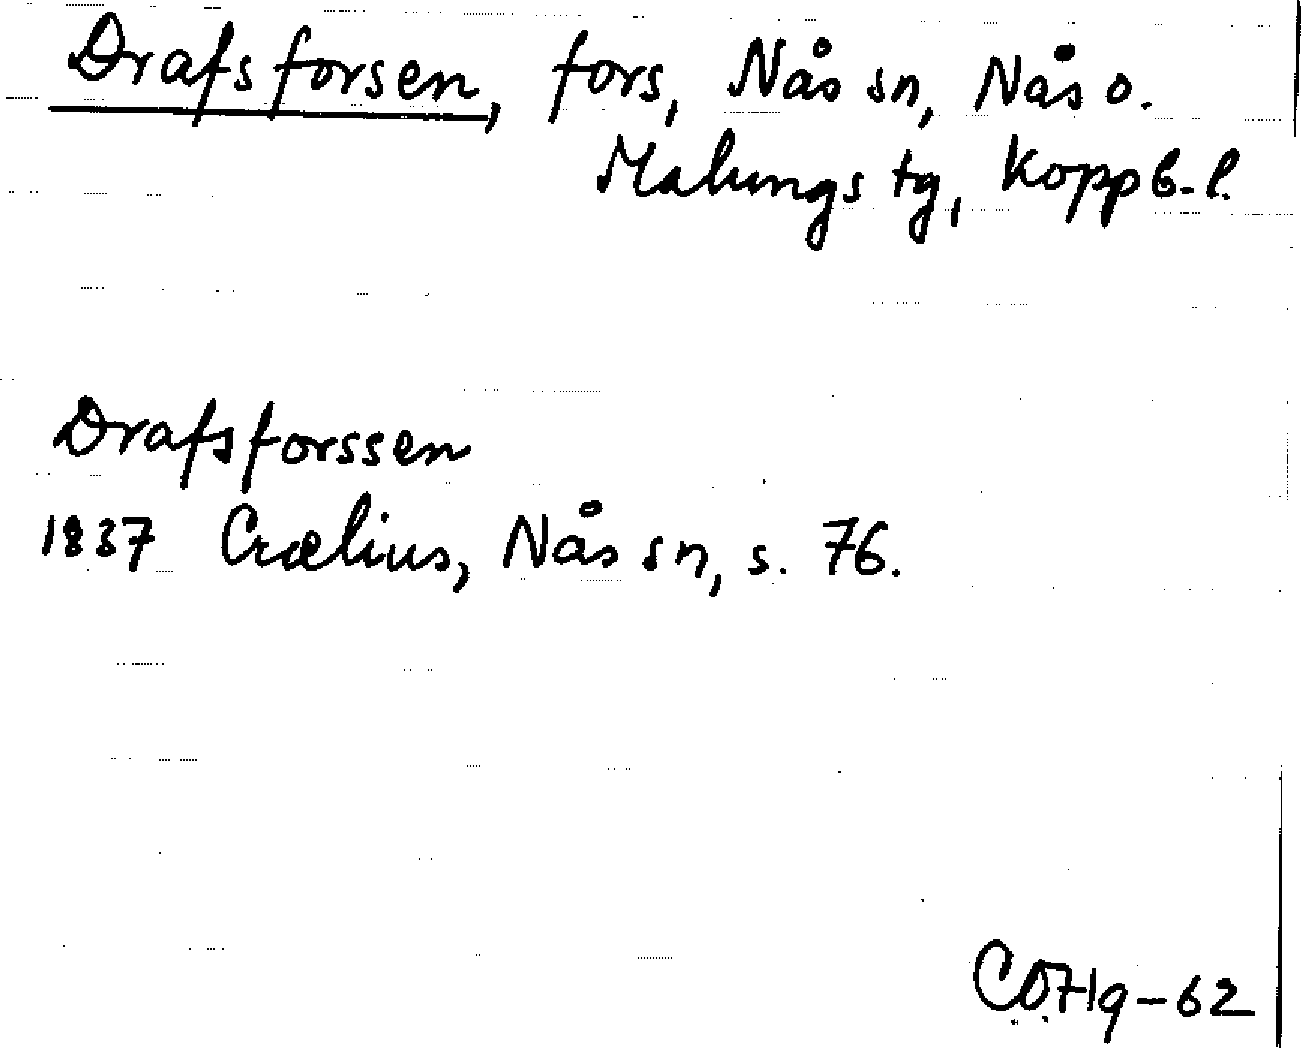 Drafsforsen, fors, Nås sn, Nås o.
Malungs tg, Koppb.l.
Drafsforssen
1837 Crælius, Nås sn, s. 76.
-62